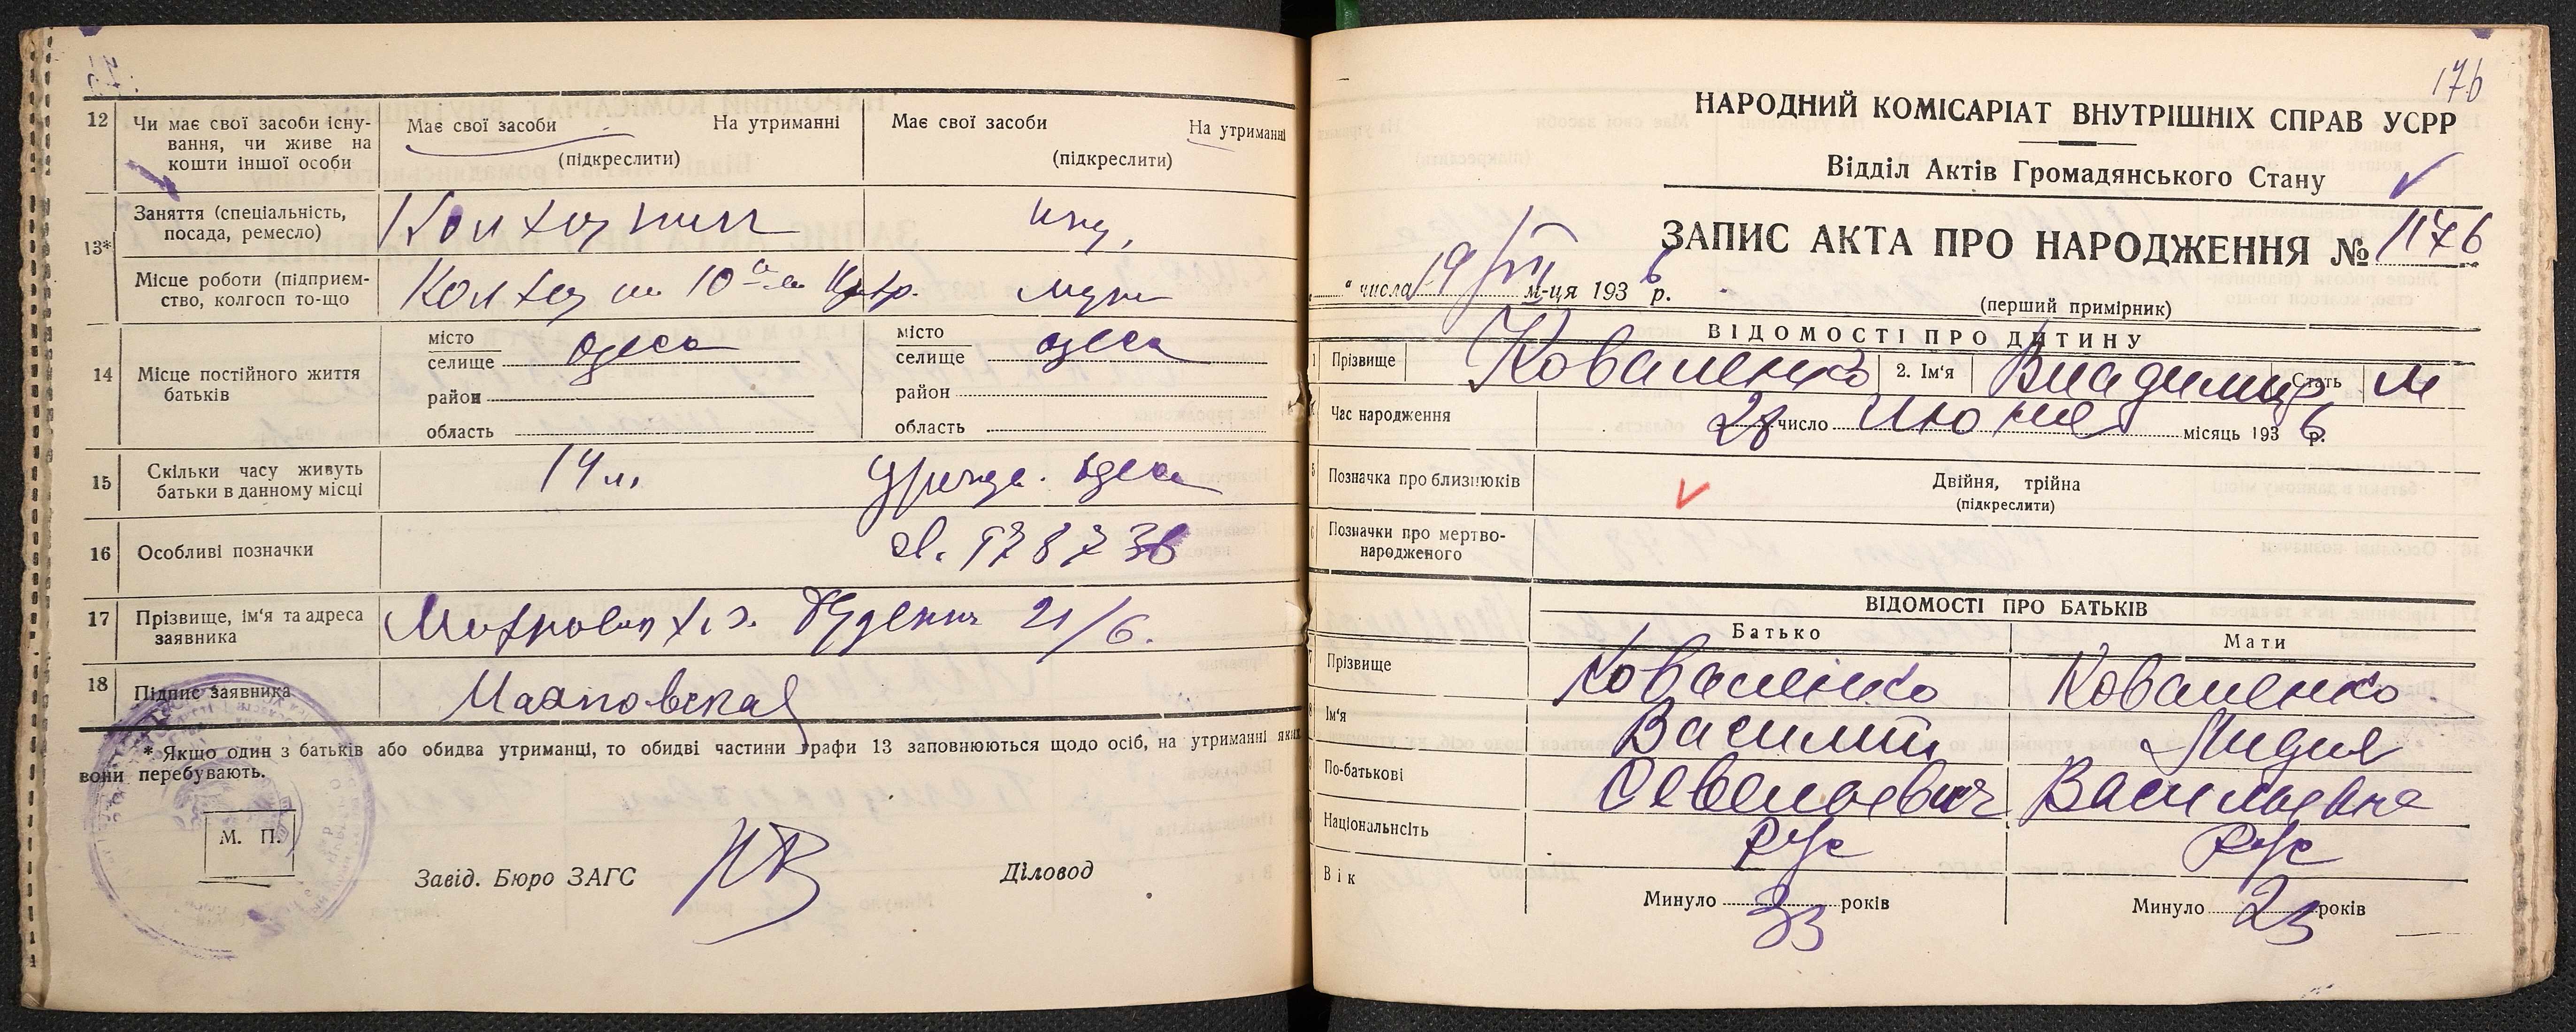 12 Чи має свої засоби існу-
вання, чи живе на
кошти іншої особи
Має свої засоби На утриманні
(підкреслити)
Має свої засоби На утриманні
(підкреслити)
13* Заняття (спеціальність,
посада, ремесло)
Місце роботи (підприєм-
ство, колгосп то-що
14 Місце постійного життя
батьків
місто
селище Одеса
район
область
місто
селище Одеса
район
область
15 Скільки часу живуть
батьки в данному місці
14 л.
16 Особливі позначки
17 Прізвище, ім'я та адреса
заявника
21/6.
18 Підпис заявника
* Якщо один з батьків або обидва утриманці, то обидві частини графи 13 заповнюються щодо осіб, на утриманні яких
вони перебувають.
М. П.
Завід. Бюро ЗАГС
Діловод
176
НАРОДНИЙ КОМІСАРІАТ ВНУТРІШНІХ СПРАВ УСРР
Відділ Актів Громадянського Стану
ЗАПИС АКТА ПРО НАРОДЖЕННЯ № 1176
" числа 19/VII м-ця 1936 р.
(перший примірник)
ВІДОМОСТІ ПРО ДИТИНУ
1 Прізвище Коваленко 2. Ім'я Владимир Стать м
Час народження
28 число Июня місяць 1936 р.
5 Позначка про близнюків
Двійня, трійна
(підкреслити)
6 Позначки про мертво-
народженого
ВІДОМОСТІ ПРО БАТЬКІВ
Батько Мати
Прізвище Коваленко Коваленко
Ім'я Василий Лидия
По-батькові Савельевич Васильевна
Національнсіть Рус Рус
Вік
Минуло 33 років
Минуло 23 років